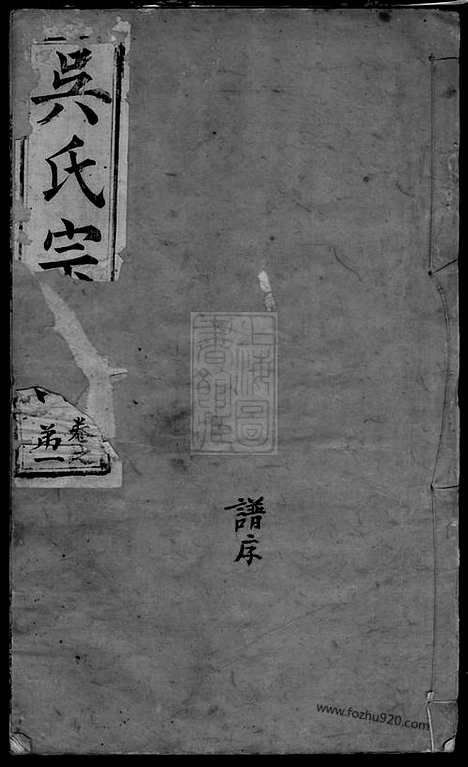 吳氏宗
卷之
第一
上海圖
書館藏
譜序
www.fozhu920.com